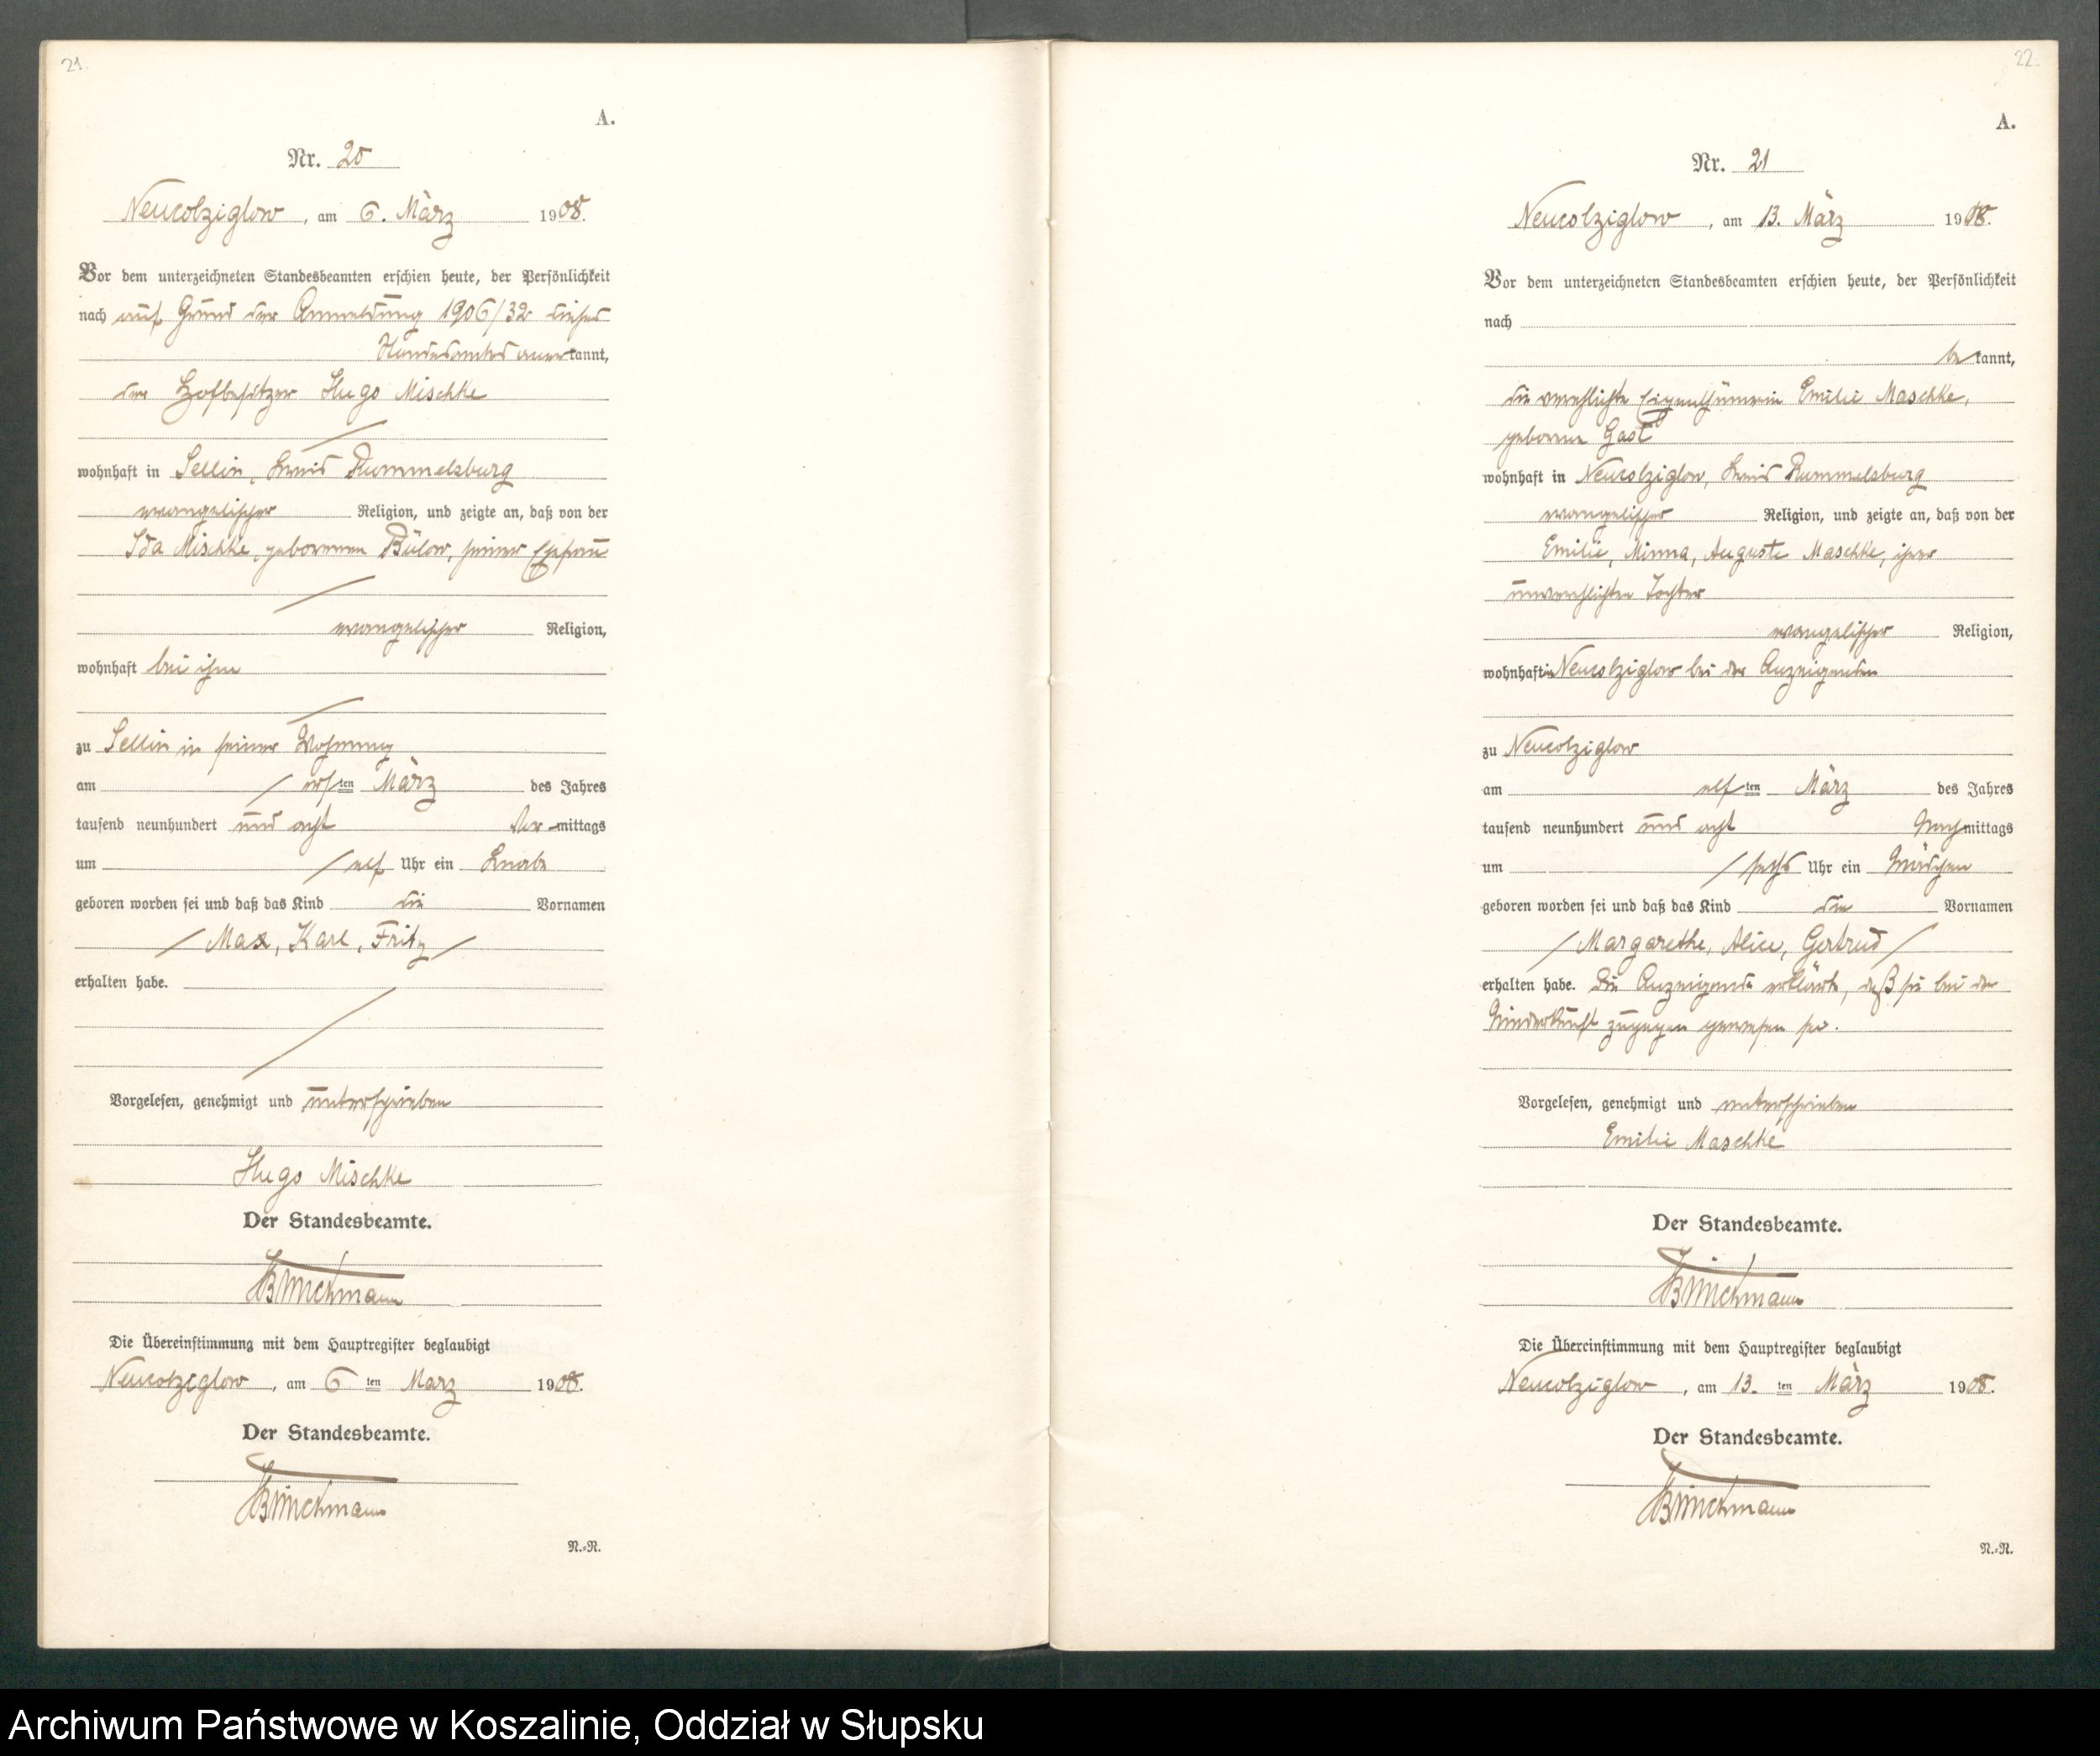 21.
A.
Nr. 20
Neucolziglow, am 6. März 1908.
Vor dem unterzeichneten Standesbeamten erschien heute, der Persönlichkeit
nach auf Grund der Anmeldung 1906/32 dieses
Standesamtes anerkannt,
der Hofbesitzer Hugo Mischke
wohnhaft in Sellin, Kreis Rummelsburg
evangelischer Religion, und zeigte an, daß von der
Ida Mischke, geborenen Bülow, seiner Ehefrau
evangelischer Religion,
wohnhaft bei ihm
zu Sellin in seiner Wohnung
am ersten März des Jahres
tausend neunhundert und acht Vormittags
um elf Uhr ein Knabe
geboren worden sei und daß das Kind die Vornamen
Max, Karl, Fritz
erhalten habe.
Vorgelesen, genehmigt und unterschrieben
Hugo Mischke
Der Standesbeamte.
Brinckmann
Die Übereinstimmung mit dem Hauptregister beglaubigt
Neucolziglow, am 6ten März 1908.
Der Standesbeamte.
Brinckmann
N.=R.
22.
A.
Nr. 21
Neucolziglow, am 13. März 1908.
Vor dem unterzeichneten Standesbeamten erschien heute, der Persönlichkeit
nach
bekannt,
die verehlichte Eigenthümerin Emilie Maschke,
geborene Gast
wohnhaft in Neucolziglow, Kreis Rummelsburg
evangelischer Religion, und zeigte an, daß von der
Emilie, Minna, Auguste Maschke, ihrer
unverehlichten Tochter
evangelischer Religion,
wohnhaft in Neucolziglow bei der Anzeigenden
zu Neucolziglow
am elften März des Jahres
tausend neunhundert und acht Nachmittags
um sechs Uhr ein Mädchen
geboren worden sei und daß das Kind die Vornamen
Margarethe, Alice, Gertrud
erhalten habe. Die Anzeigende erklärte, daß sie bei der
Niederkunft zugegen gewesen sei.
Vorgelesen, genehmigt und unterschrieben
Emilie Maschke
Der Standesbeamte.
Brinckmann
Die Übereinstimmung mit dem Hauptregister beglaubigt
Neucolziglow, am 13.ten März 1908.
Der Standesbeamte.
Brinckmann
N.=R.
Archiwum Państwowe w Koszalinie, Oddział w Słupsku